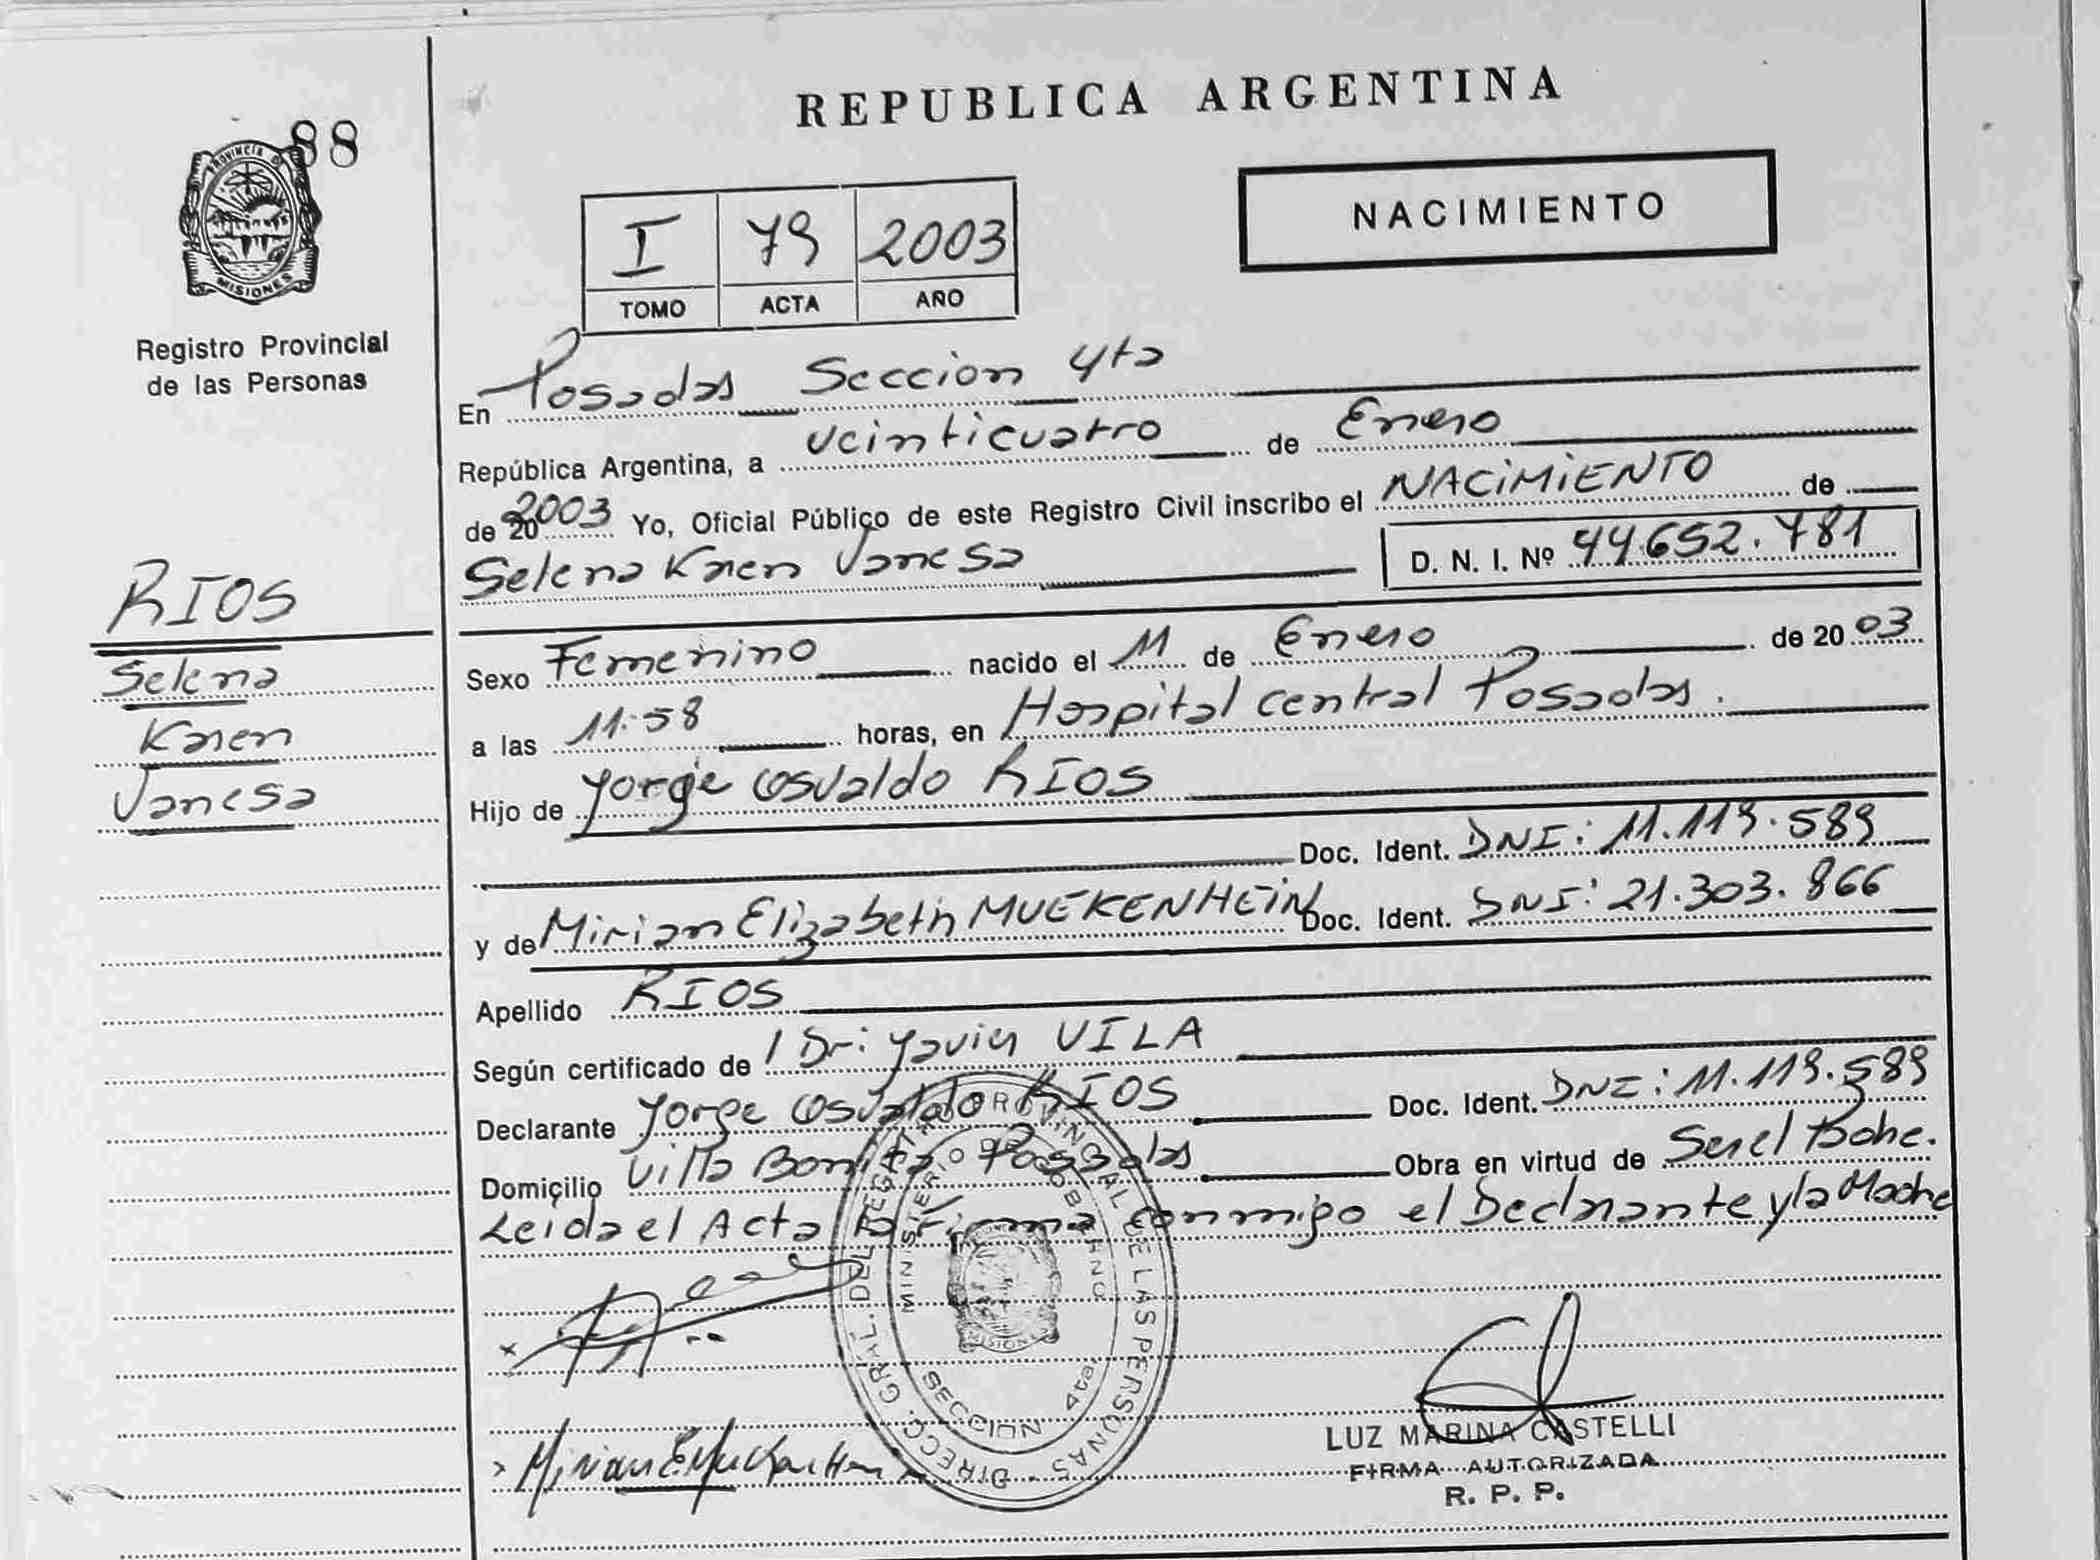 REPUBLICA ARGENTINA
88
PROVINCIA DE MISIONES
Registro Provincial
de las Personas
I 79 2003
TOMO ACTA AÑO
NACIMIENTO
En Posadas Seccion 4ta
República Argentina, a veinticuatro de Enero
de 20 2003 Yo, Oficial Público de este Registro Civil inscribo el NACIMIENTO de
Selena Karen Vanesa D. N. I. Nº 44.652.781
RIOS
Selena
Karen
Vanesa
Sexo Femenino nacido el 11 de Enero de 20 03
a las 11:58 horas, en Hospital Central Posadas.
Hijo de Jorge Osvaldo RIOS
Doc. Ident. DNI: 11.119.589
y de Mirian Elizabeth MUEKENHEIN Doc. Ident. DNI: 21.303.866
Apellido RIOS
Según certificado de Dr: Javier VILA
Declarante Jorge Osvaldo RIOS Doc. Ident. DNI: 11.119.589
Domicilio Villa Bonita Posadas Obra en virtud de Ser el Padre.
Leida el Acta la Firma conmigo el Declarante y la Madre
DIRECC. GRAL. DEL REGISTRO PROVINCIAL DE LAS PERSONAS
MINISTERIO DE GOBIERNO
MISIONES
SECCION 4ta
LUZ MARINA CASTELLI
FIRMA AUTORIZADA
R. P. P.